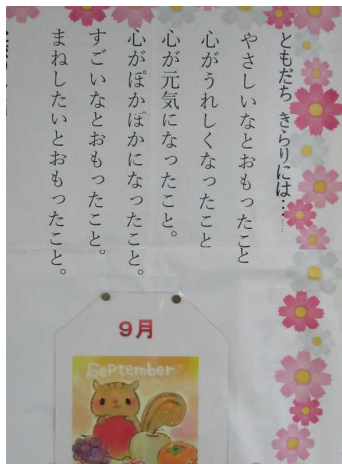 ともだち きらりには・・・
やさしいなとおもったこと
心がうれしくなったこと
心が元気になったこと。
心がぽかぽかになったこと。
すごいなとおもったこと。
まねしたいとおもったこと。
9月
September